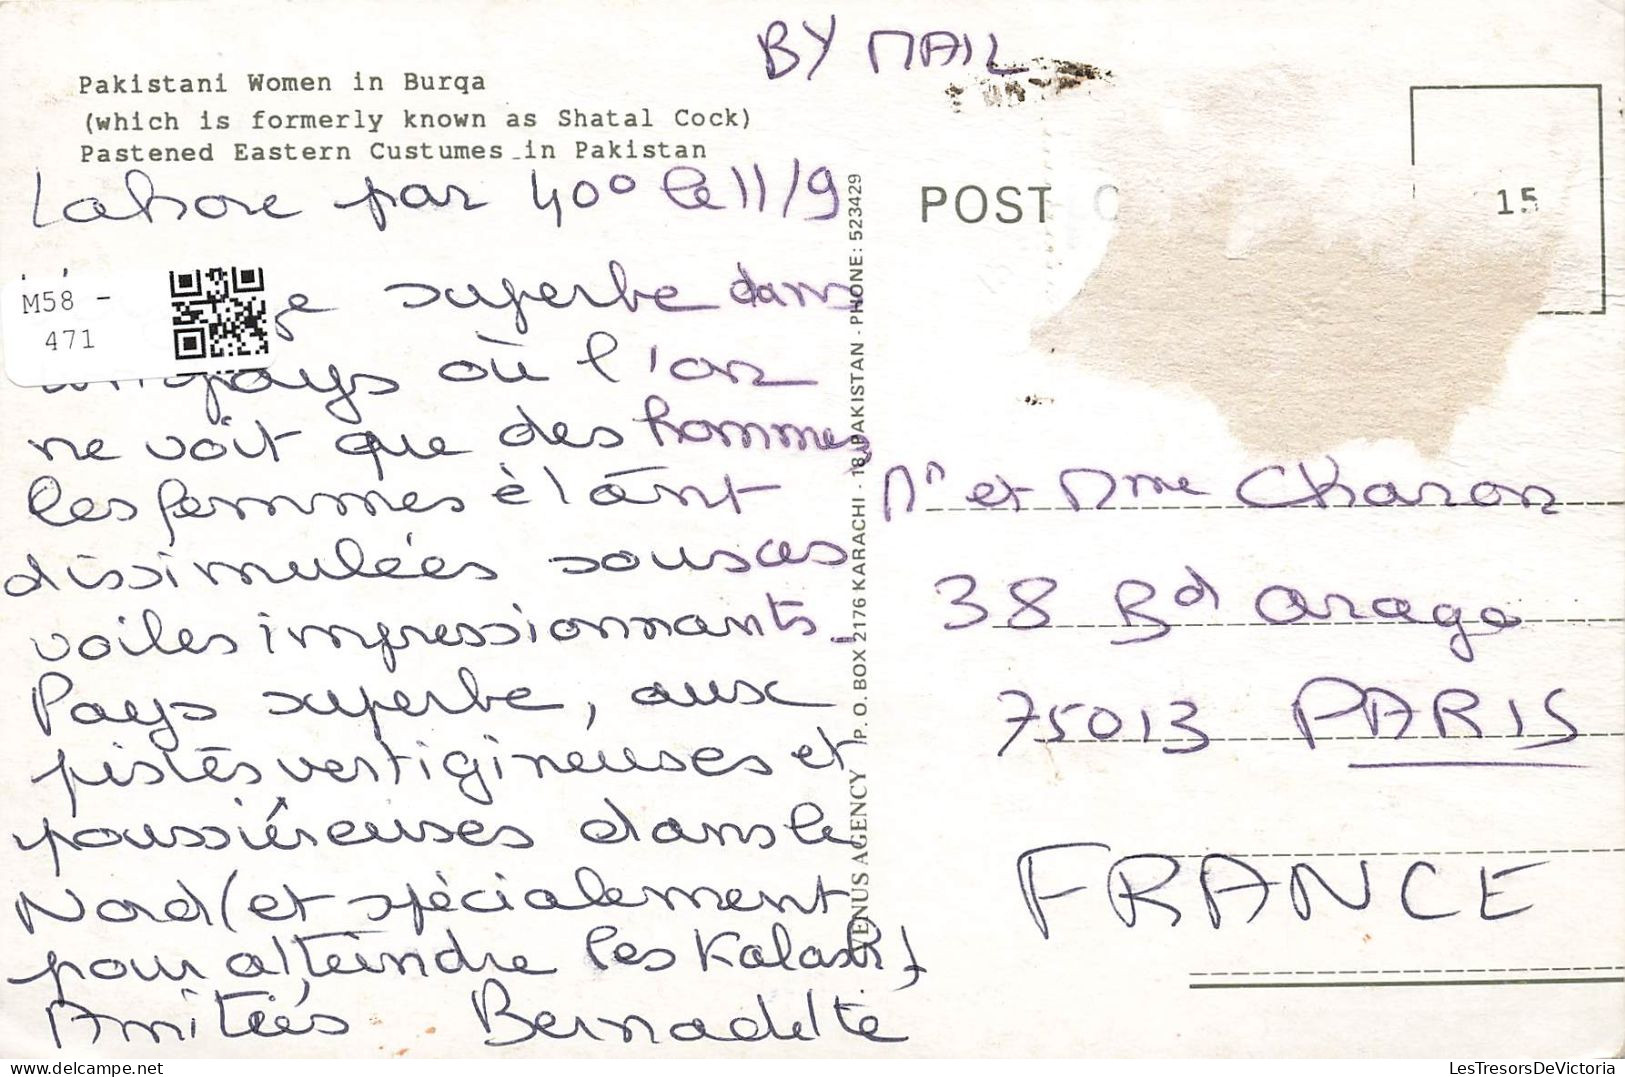 BY MAIL
Pakistani Women in Burqa
(which is formerly known as Shatal Cock)
Pastened Eastern Custumes in Pakistan
POST
15
Lahore par 40° le 11/9
M58 -
471
superbe dans
pays où l'on
ne voit que des hommes
les femmes étant
dissimulées sous ces
voiles impressionnants.
Pays superbe, aux
pistes vertigineuses et
poussiéreuses dans le
Nord (et spécialement
pour atteindre les Kalash)
Amitiés Bernadette
VENUS AGENCY P. O. BOX 2176 KARACHI - 18 PAKISTAN - PHONE: 523429
Mr et Mme Charon
38 Bd arago
75013 PARIS
FRANCE
LesTresorsDeVictoria